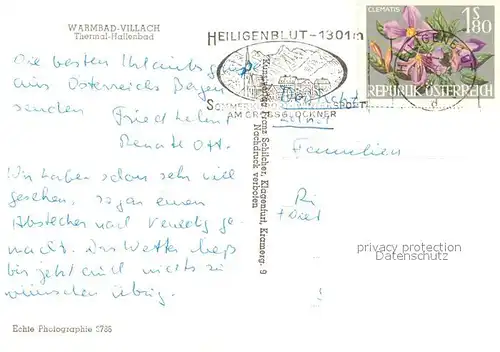 WARMBAD-VILLACH
Thermal-Hallenbad
HEILIGENBLUT – 1301m
SOMMER
SPORT
AM GROSSGLOCKNER
CLEMATIS
1S80
REPUBLIK ÖSTERREICH
HEILIGENBLUT
Die besten Urlaubsgrüße
aus Österreichs Bergen
senden Friedhelm
Renate Ott.
Wir haben schon sehr viel
gesehen, sogar einen
Abstecher nach Venedig ge-
macht. Das Wetter ließ
bis jetzt auch nichts zu
wünschen übrig.
Echte Photographie 2785
Kunstverlag Franz Schilcher, Klagenfurt, Kramerg. 9
Nachdruck verboten
Familien
privacy protection
Datenschutz